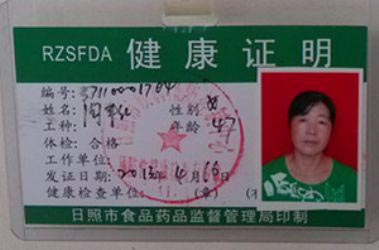 RZSFDA 健康证明
编号: 371100001704
姓名: 性别: 女
工种: 年龄: 47
体检: 合格
工作单位:
发证日期: 2013年4月16日
健康检查单位: (章)
日照市食品药品监督管理局印制